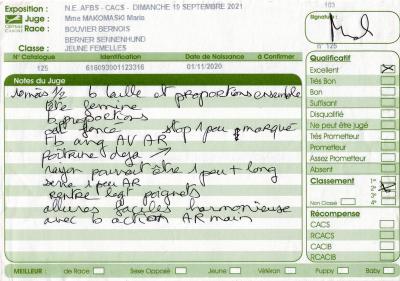 103
Exposition : N.E. AFBS - CACS - DIMANCHE 19 SEPTEMBRE 2021
Juge : Mme MAKOMASKI Maria
Race : BOUVIER BERNOIS
BERNER SENNENHUND
Classe : JEUNE FEMELLES
Signature :
n° 125
N° Catalogue Identification Date de Naissance à Confirmer
125 616093901123316 01/11/2020
Notes du Juge
10 mois 1/2 b taille et proportions ensemble
tête femine
b proportions
foncé stop 1 peu marqué
Fb ang AV AR
poitrine deja
pourrait être 1 peu + long
serré 1 peu AR
rentre legt poignets
allures faciles harmonieuse
avec b action AR main
Qualificatif
Excellent
Très Bon
Bon
Suffisant
Disqualifié
Ne peut être jugé
Très Prometteur
Prometteur
Assez Prometteur
Absent
Classement 1er
2e
3e
Non Classé 4e
Récompense
CACS
RCACS
CACIB
RCACIB
MEILLEUR : de Race Sexe Opposé Jeune Vétéran Puppy Baby